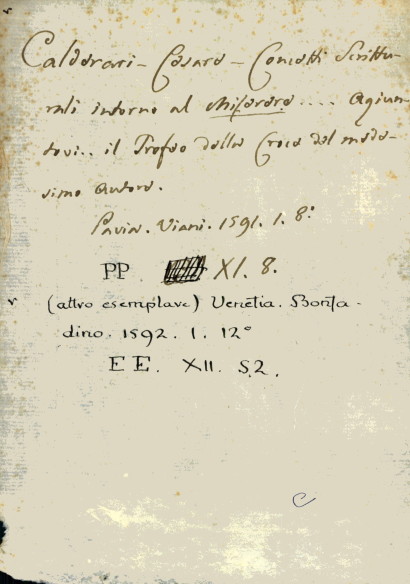 Calderari - Cesare - Concetti Scrittu-
rali intorno al Miserere .... Agiun-
tovi .. il Trofeo della Croce del mede-
simo autore.
Pavia. Viani. 1591. 1. 8°
PP XI. 8.
(altro esemplare) Venetia. Bonfa-
dino. 1592. 1. 12°
EE. XII. 52.